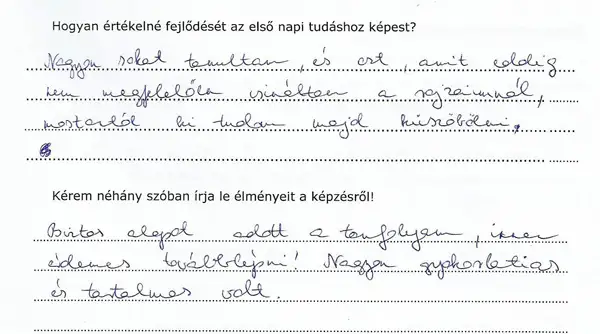 Hogyan értékelné fejlődését az első napi tudáshoz képest?
Nagyon sokat tanultam, és ezt, amit eddig
nem megfelelően csináltam a rajzaimnál,
mostantól ki tudom majd küszöbölni.
Kérem néhány szóban írja le élményeit a képzésről!
Biztos alapot adott a tanfolyam, innen
érdemes továbblépni! Nagyon gyakorlatias
és tartalmas volt.